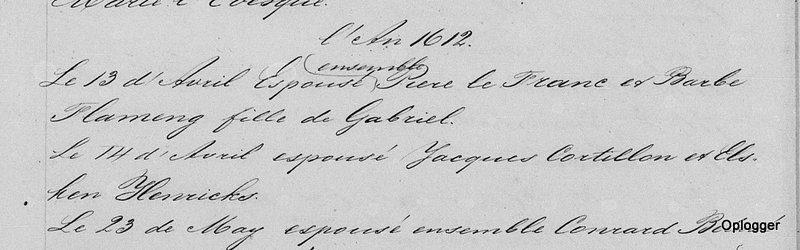 Marie l'Evesque.
l'An 1612.
ensemble
Le 13 d'Avril Espousé Piere le Franc et Barbe
Flameng fille de Gabriel.
Le 14 d'Avril espousé Jacques Cortillon et Els-
ken Henricks.
Le 23 de May espousé ensemble Conrard
Oplogger